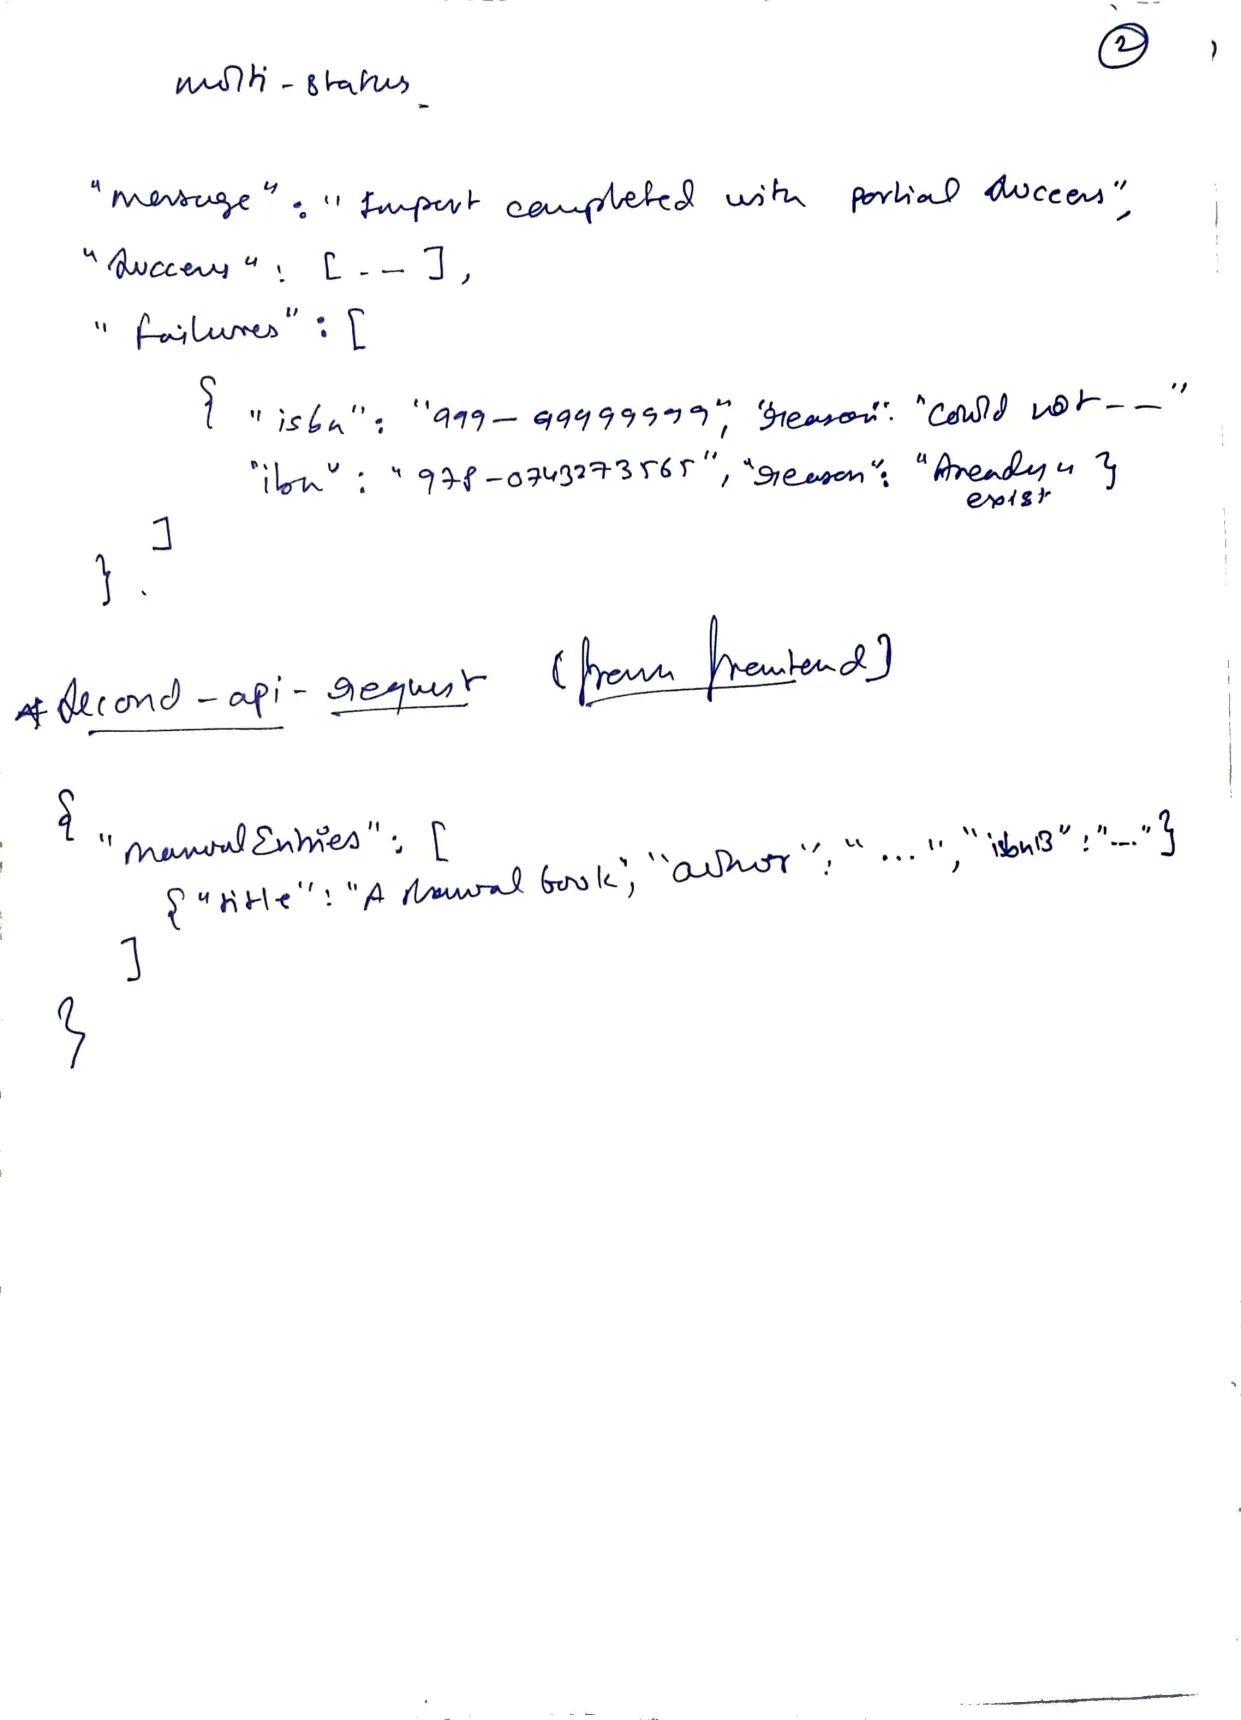 2
multi-status
"message": "Import completed with partial success",
"success": [---],
"failures": [
{ "isbn": "999-99999999", "reason": "Could not--"
"ibn": "978-0743273565", "reason": "Aready" }
exist
]
}.
* Second-api-request (from frontend)
{
"manualEntries": [
{ "title": "A Manual book", "author": "...", "isbn13": "..." }
]
}